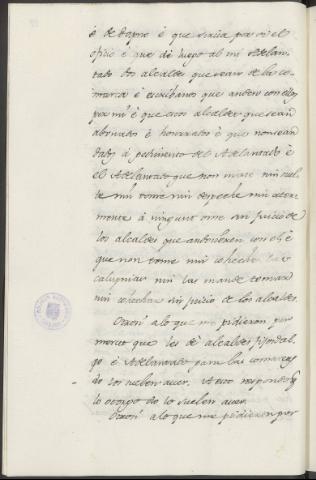 é de dapno é que sirua por si el
oficio é que dé luego al mi Adelan-
tado dos alcaldes que sean de la co-
marca é escribanos que anden con ellos
por mi é que estos alcaldes que sean
abonados é honrados é que non sean
dados á pedimento del Adelantado é
el Adelantado que non mate nin suel-
te nin tome nin despeche nin ator-
mente á ningunt ome sin juicio de
los alcaldes que andovieren con él é
que non tome nin coheche las
calupnias nin las mande tomar
nin cohechar sin juicio de los alcaldes.
Otrosí á lo que me pidieron por
merced que les dé alcaldes fijosdal-
go é Adelantado para las comarcas
do los suelen aver. A esto respondo q
lo otorgo do lo suelen aver.
Otrosí á lo que me pidieron por